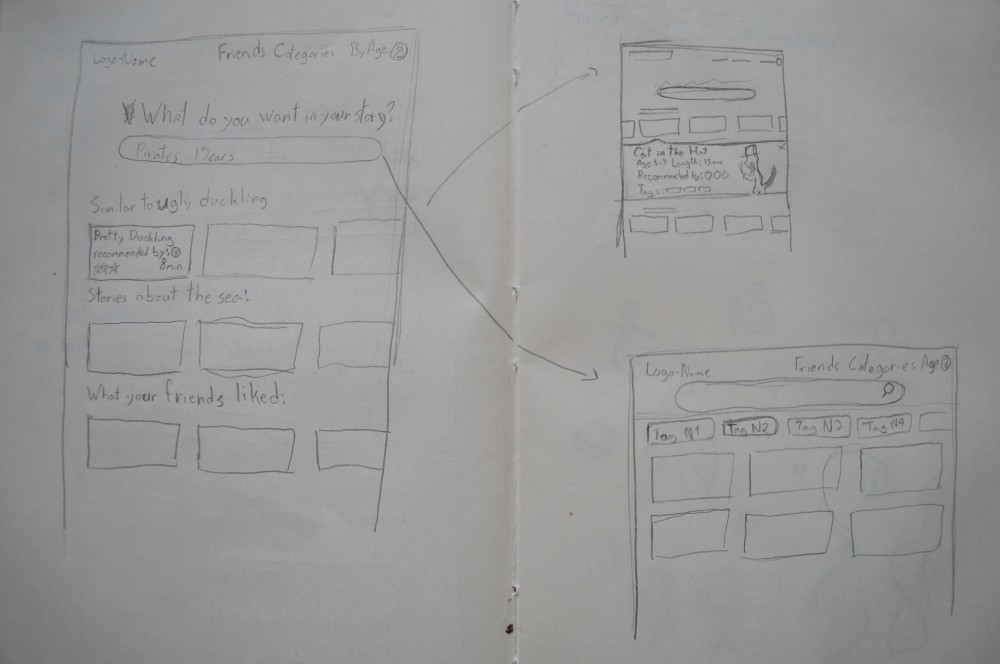 Logo-Name Friends Categories By Age
What do you want in your story?
Pirates, Bears
Similar to ugly duckling
Pretty Duckling
recommended by:
8min
Stories about the sea:
What your friends liked:
Cat in the Hat
Age 5-7 Length: 15min
Recommended by:
Tags:
Logo-Name Friends Categories Age
Tag N1 Tag N2 Tag N3 Tag N4